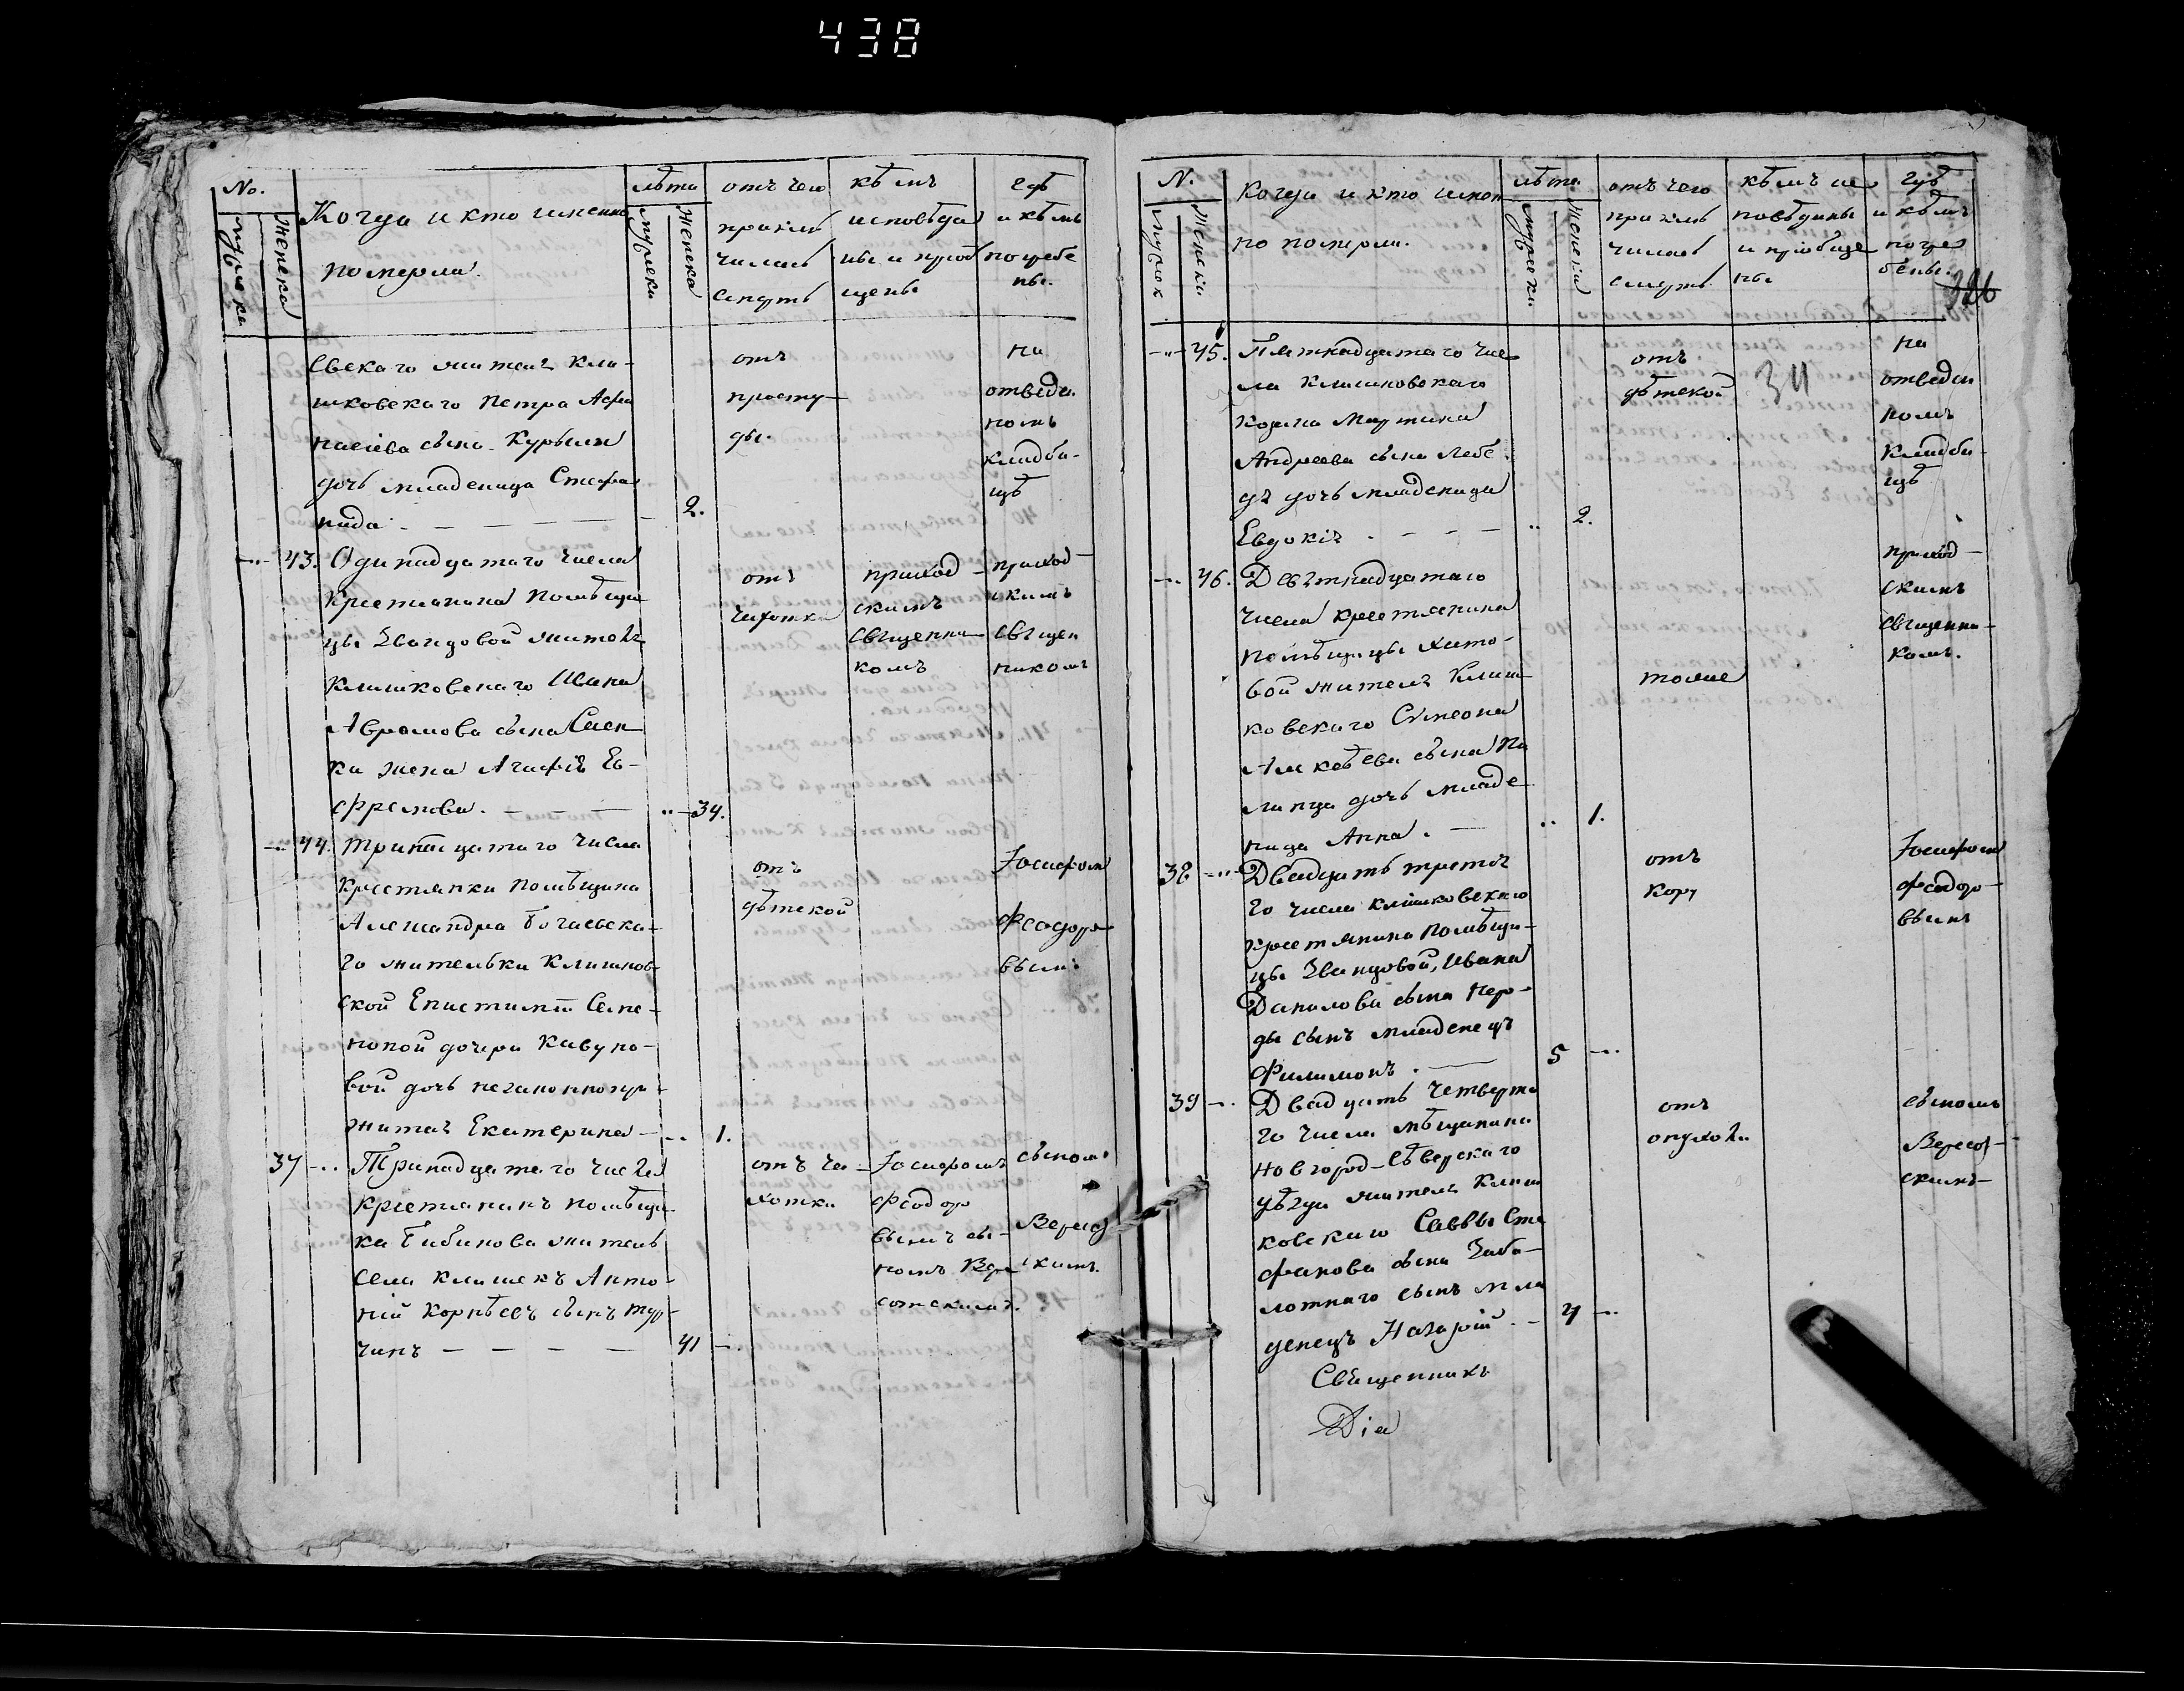 438
No.
мужеска
женска
Когда и кто именно
померли.
лѣта
мужеска
женска
отъ чего
приклю
чилась
смерть
кѣмъ
исповѣда
ны и приоб
щены
гдѣ
и кѣмъ
погребе
ны.
евскаго жителя Кли-
шковскаго Петра Афа
насіева сына Курбыли
дочь младеница Стефа
нида 2.
отъ
просту-
ды.
на
отведен
номъ
кладби-
щѣ
43. Одинадцатаго числа
крестьянина помѣщи
цы жителя
Клишковскаго Ивана
Аврамова сына
жена Агафія Ев-
фремова. 34.
отъ
чихотки
приход-
скимъ
священни-
комъ
приход-
скимъ
священ
никомъ
44. числа
крестянки помѣщика
Александра
го жительки Клишков-
ской Епистиміи Семе-
новой дочери Кавуно-
вой дочь незаконнопри-
житая Екатерина 1.
отъ
дѣтской
Іосифомъ
Феодоро-
вымъ
37 Тринадцатаго числа
крестянинъ помѣщи
ка житель
села Клишекъ Анто-
ній Корнѣевъ сынъ Тур-
чинъ 41
отъ чи-
хотки
Іосифомъ
Феодоро
вымъ сы-
номъ Вере
сотскимъ.
сыномъ
Вересот
скимъ.
N.
мужск.
женски
Когда и кто имен
но померли.
лѣта
мужески
женски
отъ чего
приклю
чилась
смерть
кѣмъ ис
повѣданы
и приобще
ны
гдѣ
и кѣмъ
погре
бены.
326
311
45. Пятнадцатаго чис
ла Клишковскаго
козака Мартина
Андреева сына Лебе
дя дочь младеница
Евдокія 2.
отъ
дѣтской
на
отведен
номъ
кладби-
щѣ
46. Девятнадцатаго
числа крестянина
помѣщицы
вой жителя Клиш-
ковскаго Симеона
Алексѣева сына Па
лица дочь младе
ница Анна. 1.
тожие
приход-
скимъ
священни-
комъ.
38 Двадцать третія
го числа Клишковскаго
крестянина помѣщи-
цы Ивана
Данилова сына Чер-
ды сынъ младенецъ
Филимонъ. 5
отъ
кору
Іосифомъ
Феодоро-
вымъ
39 Двадцать четверта
го числа мѣщанина
Новгород-Сѣверскаго
уѣзда жителя Клиш
ковскаго Саввы Сте
фанова сына Забо-
лотнаго сынъ мла
денецъ Назарій 4
отъ
опухоли
сыномъ
Вересот-
скимъ
Священникъ
Діа